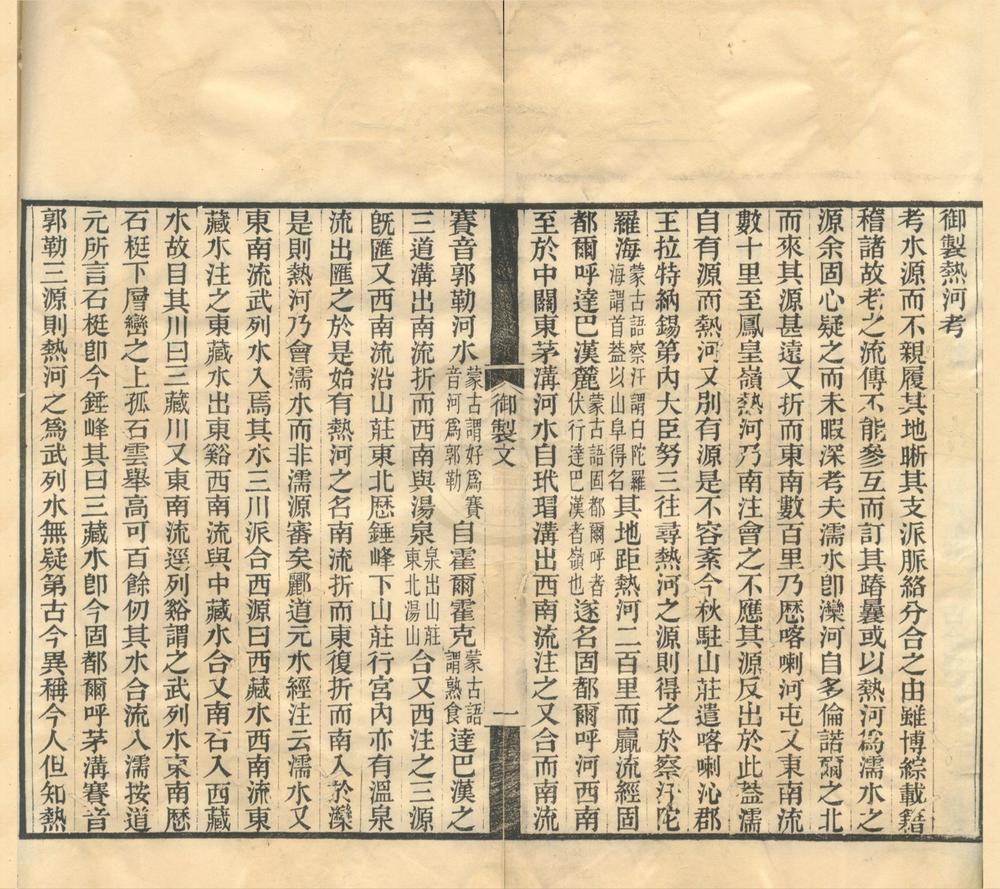 御製熱河考
考水源而不親履其地晰其支派脈絡分合之由雖博綜載籍
稽諸故老之流傳不能參互而訂其踳曩或以熱河爲濡水之
源余固心疑之而未暇深考夫濡水卽灤河自多倫諾爾之北
而來其源甚遠又折而東南數百里乃歴喀喇河屯又東南流
數十里至鳳皇嶺熱河乃南注會之不應其源反出於此葢濡
自有源而熱河又別有源是不容紊今秋駐山莊遣喀喇沁郡
王拉特納錫第內大臣努三往尋熱河之源則得之於察汗陀
羅海蒙古語察汗謂白陀羅海謂首葢以山阜得名其地距熱河二百里而贏流經固
都爾呼達巴漢麓蒙古語固都爾呼者伏行達巴漢者嶺也遂名固都爾呼河西南
至於中關東茅溝河水自玳瑁溝出西南流注之又合而南流
御製文
一
賽音郭勒河水蒙古謂好爲賽音河爲郭勒自霍爾霍克蒙古語謂熟食達巴漢之
三道溝出南流折而西南與湯泉泉出山莊東北湯山合又西注之三源
旣匯又西南流沿山莊東北歴錘峰下山莊行宮內亦有溫泉
流出匯之於是始有熱河之名南流折而東復折而南入於灤
是則熱河乃會濡水而非濡源審矣酈道元水經注云濡水又
東南流武列水入焉其水三川派合西源曰西藏水西南流東
藏水注之東藏水出東谿西南流與中藏水合又南右入西藏
水故目其川曰三藏川又東南流逕列谿謂之武列水東南歴
石梃下層巒之上孤石雲舉高可百餘仞其水合流入濡按道
元所言石梃卽今錘峰其曰三藏水卽今固都爾呼茅溝賽音
郭勒三源則熱河之爲武列水無疑第古今異稱今人但知熱